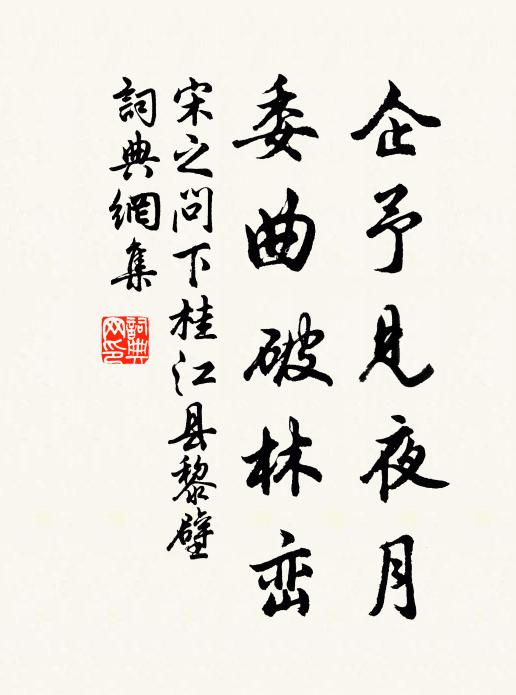 企予见夜月
委曲破林峦
宋之问下桂江县黎壁
詞典網集
詞典网印